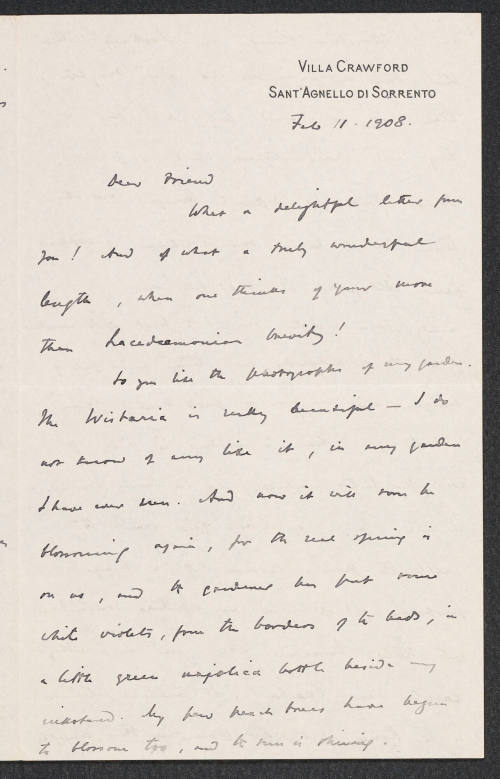 VILLA CRAWFORD
SANT'AGNELLO DI SORRENTO
Feb 11. 1908.
Dear Friend
What a delightful letter from
you! And of what a truly wonderful
length, when one thinks of your more
than Lacedaemonian brevity!
So you like the photographs of my garden.
The Wistaria is really beautiful — I do
not know of any like it, in any garden
I have ever seen. And now it will soon be
blossoming again, for the real spring is
on us, and the gardener has put some
white violets, from the borders of the beds, in
a little green majolica bottle beside my
inkstand. My few peach trees have begun
to blossom too, and the sun is shining.